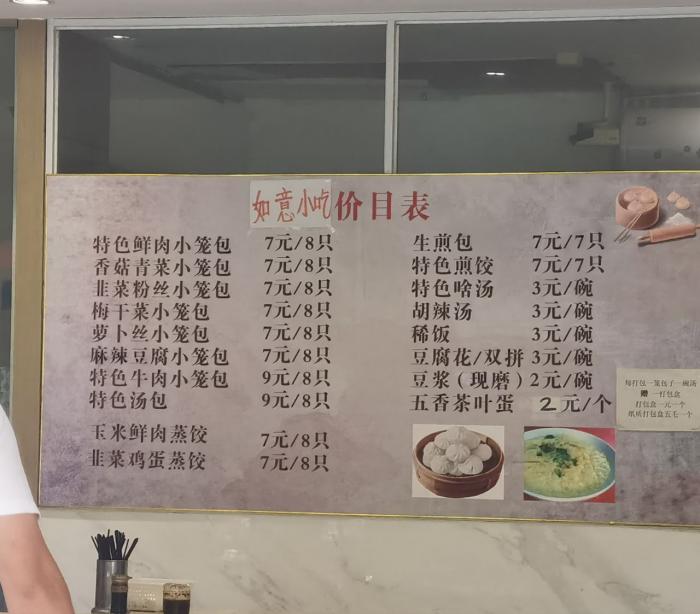 如意小吃价目表
特色鲜肉小笼包 7元/8只
香菇青菜小笼包 7元/8只
韭菜粉丝小笼包 7元/8只
梅干菜小笼包 7元/8只
萝卜丝小笼包 7元/8只
麻辣豆腐小笼包 7元/8只
特色牛肉小笼包 9元/8只
特色汤包 9元/8只
玉米鲜肉蒸饺 7元/8只
韭菜鸡蛋蒸饺 7元/8只
生煎包 7元/7只
特色煎饺 7元/7只
特色啥汤 3元/碗
胡辣汤 3元/碗
稀饭 3元/碗
豆腐花/双拼 3元/碗
豆浆（现磨）2元/碗
五香茶叶蛋 2元/个
每打包一笼包子一碗汤
赠 一打包盒
打包盒一元一个
纸质打包盒五毛一个